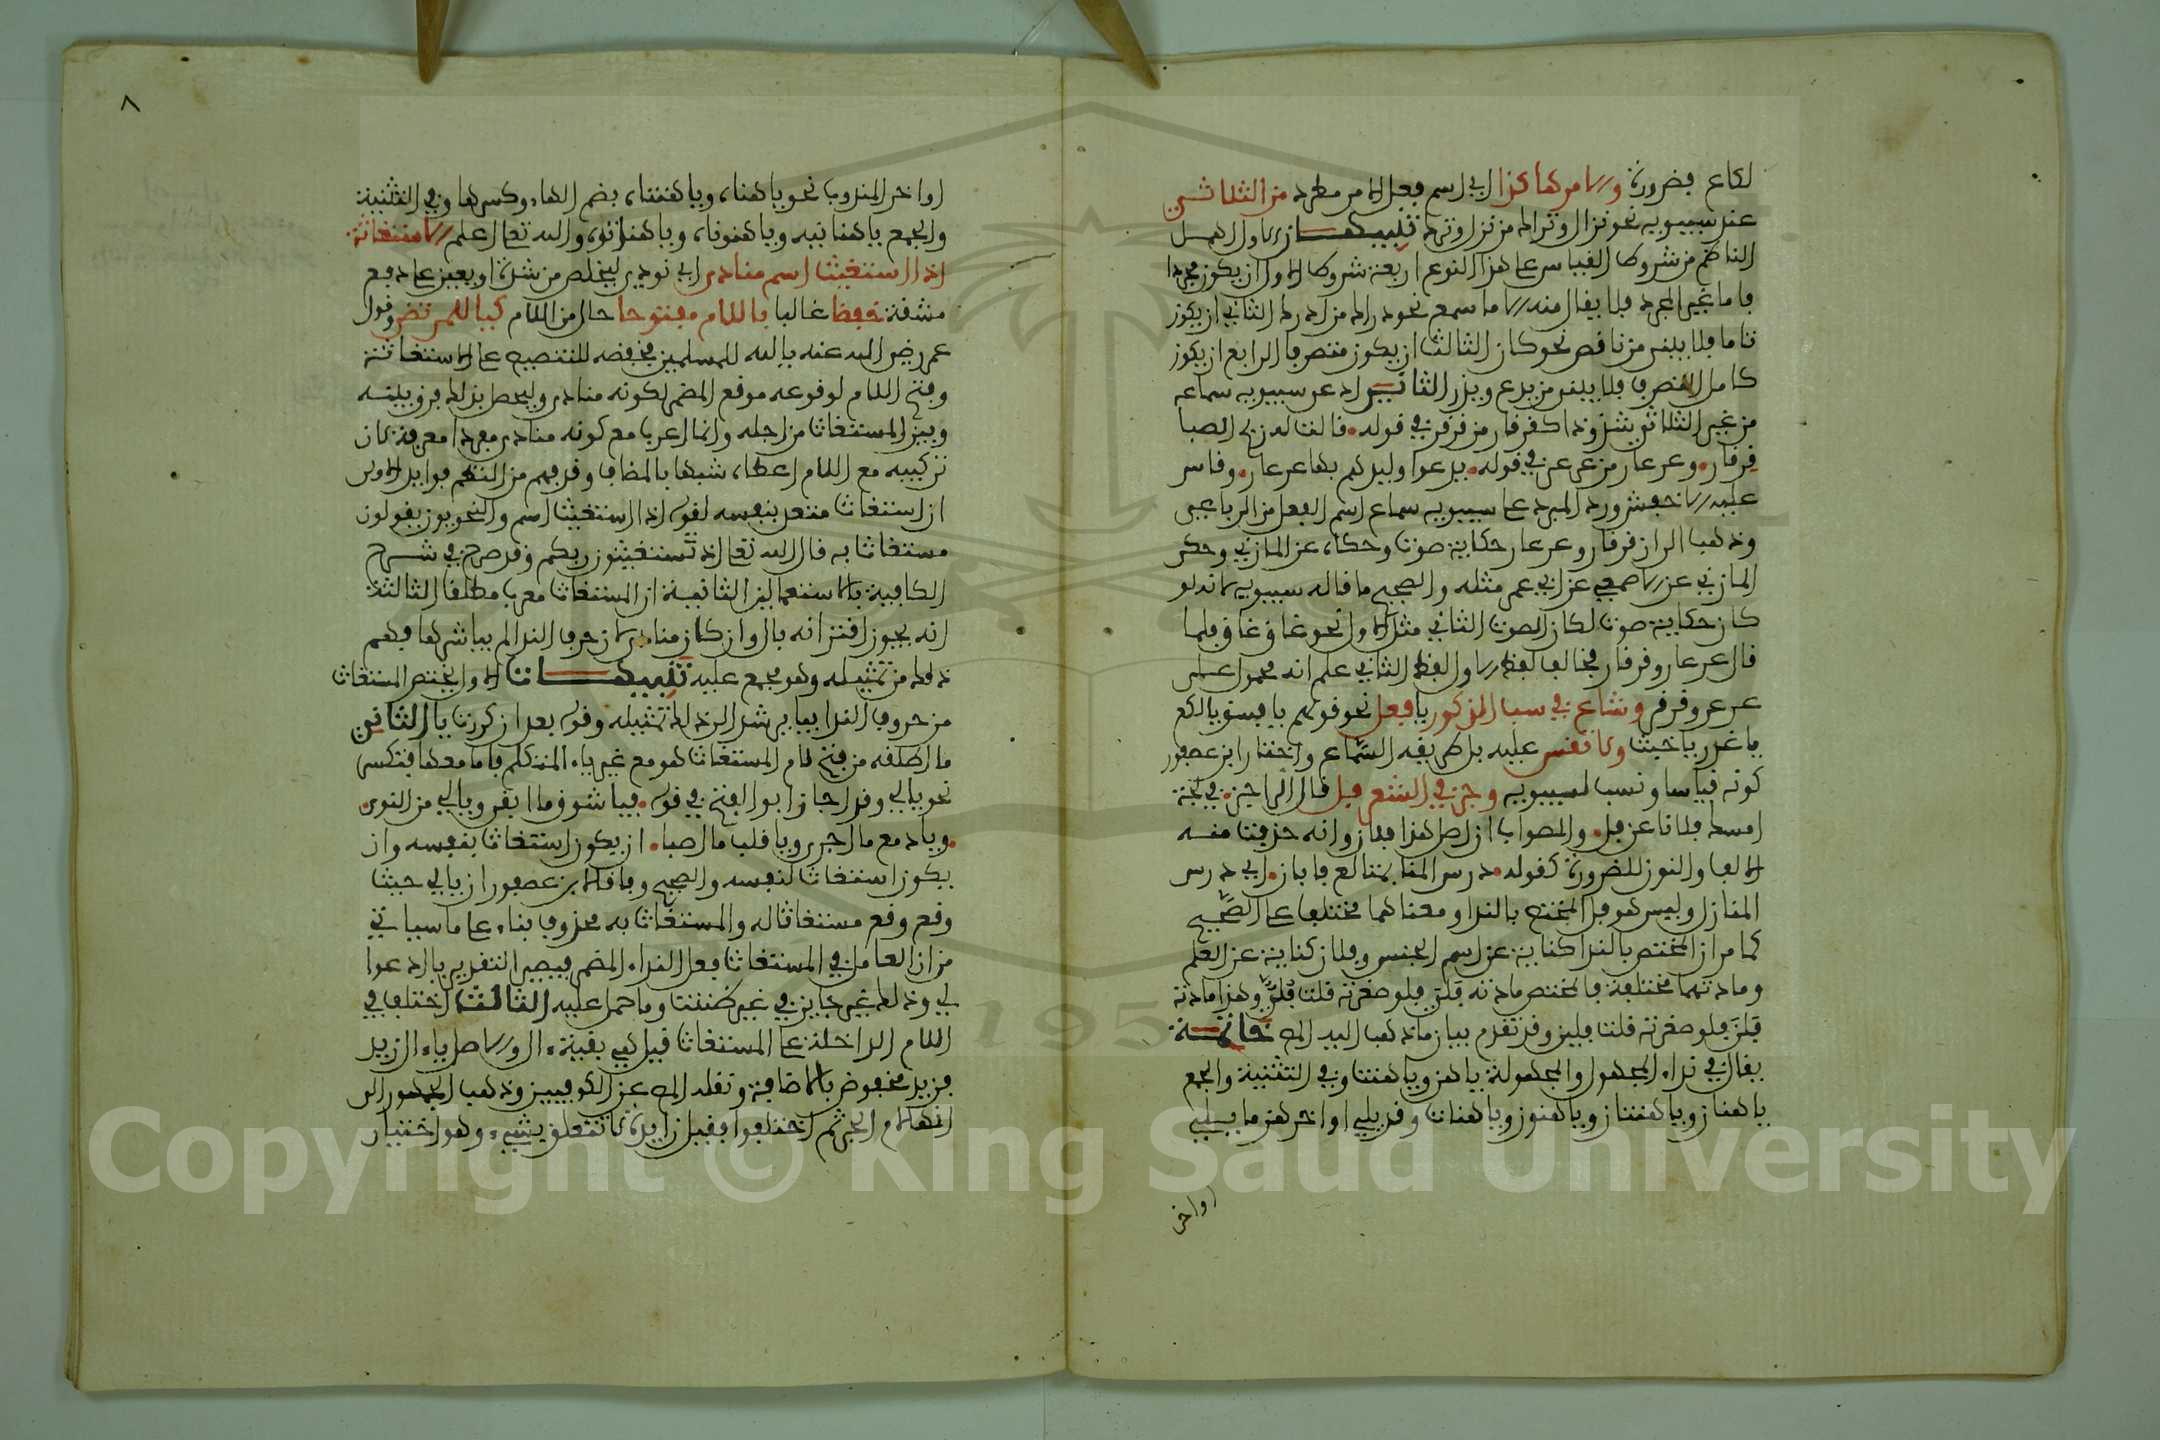 لكاع فضرورة والامر هاكذا اي اسم فعل الامر مطرد من الثلاثي
عند سيبويه نحو نزال وتراك من نزل وترك تنبيهات الاول اهمل
الناظم من شروط القياس على هذا النوع اربعة شروط الاول ان يكون مجردا
فاما غير المجرد فلا يقال منه الا ما سمع نحو دراك من ادرك الثاني ان يكون
تاما فلا يبنى من ناقص نحو كان الثالث ان يكون متصرفا الرابع ان يكون
كامل التصرف فلا يبنى من يدع ويذر الثاني ادعى سيبويه سماعه
من غير الثلاثي شذوذا كقرقار من قرقر في قوله قالت له ريح الصبا
قرقار وعرعار من عرعر في قوله يدعوا وليدهم بها عرعار وقاس
عليه الاخفش ورد المبرد على سيبويه سماع اسم الفعل من الرباعي
وذهب الى ان قرقار وعرعار حكاية صوت وحكاه عن المازني وحكى
المازني عن الاصمعي عن ابي عمر مثله والصحيح ما قاله سيبويه لانه لو
كان حكاية صوت لكان الصوت الثاني مثل الاول نحو غاق غاق فلما
قال عرعار وقرقار فخالف لفظ الاول لفظ الثاني علم انه محمول على
عرعر وقرقر وشاع في سب الذكور يا فعل نحو قولهم يا فسق يا لكع
يا غدر يا خبث ولا تقس عليه بل طريقه السماع واختار ابن عصفور
كونه قياسا ونسب لسيبويه وجر في الشعر فل قال الراجز في لجة
امسك فلانا عن فل والصواب ان اصل هذا فلان وانه حذفت منه
الالف والنون للضرورة كقوله درس المنا بمتالع فابان اي درس
المنازل وليس هو فل المختص بالندا ومعناهما مختلف على الصحيح
كما مر ان المختص بالندا كناية عن اسم الجنس وفلان كناية عن العلم
ومادتهما مختلفة فالمختص مادته فلى فلو صغرته قلت فلي وهذا مادته
فلن فلو صغرته قلت فلين وقد تقدم بيان ما ذهب اليه المص خاتمة
يقال في نداء المجهول والمجهولة يا هن ويا هنت وفي التثنية والجمع
يا هنان ويا هنتان ويا هنون ويا هنات وقد يلي اواخرهن ما يلي
اواخر
٨
اواخر المندوب نحو يا هناه ويا هنتاه بضم الهاء وكسرها وفي التثنية
والجمع يا هنانيه ويا هنوناه ويا هناتوه والله تعالى اعلم الاستغاثة
اذا استغيث اسم منادى اي نودي ليخلص من شدة او يعين على دفع
مشقة خفض غالبا باللام مفتوحا حال من اللام كيا للمرتضى وقول
عمر رضي الله عنه يا لله للمسلمين فخفضه للتنصيص على الاستغاثة
وفتح اللام لوقوعه موقع المضمر لكونه منادى وليحصل بذلك فرق بينه
وبين المستغاث من اجله وانما اعرب مع كونه منادى مفردا معرفة لان
تركيبه مع اللام اعطاه شبها بالمضاف وقد فهم من النظم فوايد الاولى
ان استغاث متعد بنفسه لقوله اذا استغيث اسم والنحويون يقولون
مستغاث به قال الله تعالى اذ تستغيثون ربكم وقد صرح في شرح
الكافية بالاستعمالين الثانية ان المستغاث معرب مطلقا الثالثة
انه يجوز اقترانه بال وان كان منادى لان حرف الندا لم يباشرها فهم
ذلك من تمثيله وهو مجمع عليه تنبيهات الاول يختص المستغاث
من حروف الندا بيا يرشد الى ذلك تمثيله وقوله بعد ان كررت يا الثاني
ما اطلقه من فتح لام المستغاث هو مع غير ياء المتكلم فاما معها فتكسر
نحو يا لي وقد اجاز ابو الفتح في قوله فيا شوق ما ابقى ويا لي من النوى
ويا دمع ما اجرى ويا قلب ما اصبا ان يكون استغاث بنفسه وان
يكون استغاث لنفسه والصحيح وفاقا لابن عصفور ان يا لي حيث
وقع وقع مستغاثا له والمستغاث به محذوف بناء على ما سياتي
من ان العامل في المستغاث فعل النداء المضمر فيصير التقدير يا ادعوا
لي وذلك غير جايز في غير ظننت وما حمل عليه الثالث اختلف في
اللام الداخلة على المستغاث فقيل هي بقية ءال والاصل يا ءال زيد
فزيد مخفوض بالاضافة ونقله المص عن الكوفيين وذهب الجمهور الى
انها لام الجر ثم اختلفوا فقيل زايدة لا تتعلق بشيء وهو اختيار
Copyright © King Saud University
195